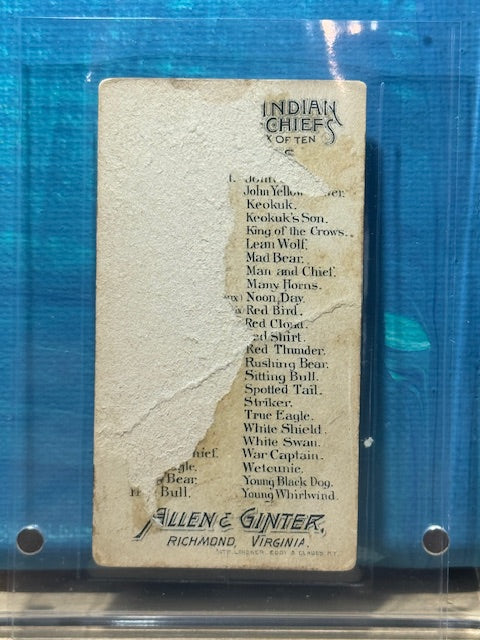 INDIAN
CHIEFS
OF TEN
John Yellow
Keokuk.
Keokuk's Son.
King of the Crows.
Lean Wolf.
Mad Bear.
Man and Chief.
Many Horns.
Noon Day.
Red Bird.
Red Cloud.
Shirt.
Red Thunder.
Rushing Bear.
Sitting Bull.
Spotted Tail.
Striker.
True Eagle.
White Shield.
White Swan.
War Captain.
Wetcunie.
Bear. Young Black Dog.
Bull. Young Whirlwind.
ALLEN & GINTER,
RICHMOND, VIRGINIA.
LINDNER, EDDY & CLAUSS, N.Y.